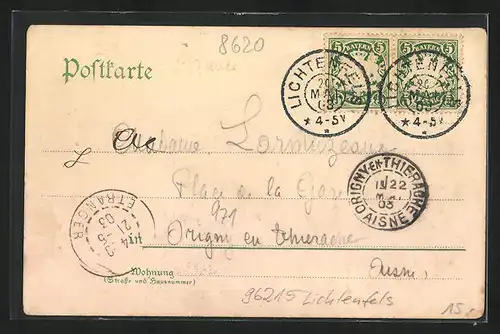 8620
Postkarte
BAYERN
5 5
BAYERN
5 5
LICHTENFELS
20
MAI
03
★ 4-5V
LICHTENFELS
MAI
03
★ 4-5V
Madame
Place de la Gare
ORIGNY-EN-THIERACHE
22
03
AISNE
ETRANGER
21 -5
03
in
Origny en Thierache
Wohnung
(Straße und Hausnummer)
Aisne
96215 Lichtenfels
15